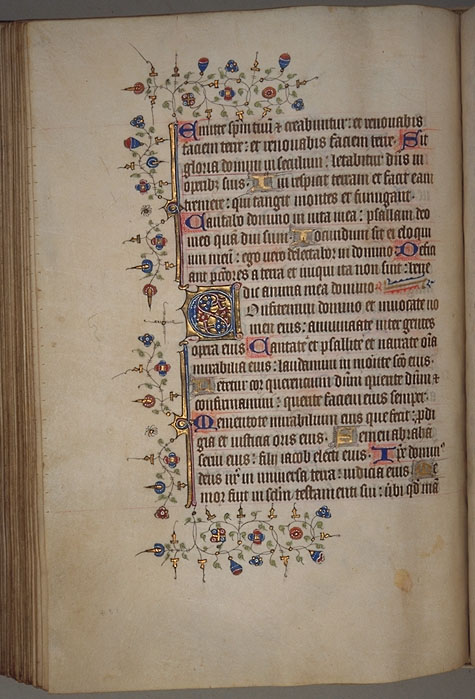 Emitte sp̄m tuū & creabuntur: et renouabis
faciem terre: et renouabis faciem terre. Sit
gloria domini in seculum: letabitur dn̄s in
operib; suis. Qui respicit terram et facit eam
tremere: qui tangit montes et fumigant.
Cantabo domino in uita mea: psallam deo
meo quā diu sum. Iocundum sit ei eloqui
um meū: ego uero delectabor in domino. Defici
ant pc̄cores a terra et iniqui ita non sint: bene
dic anima mea domino.
Confitemini domino et inuocate no
men eius: annunciate inter gentes
opera eius. Cantate ei psallite ei narrate oīa
mirabilia eius: laudamini in nomine sc̄o eius.
Letetur cor querencium dn̄m: querite dn̄m &
confirmamini: querite faciem eius semper.
Mementote mirabilium eius que fecit: ꝓdi
gia et iudicia oris eius. Semen abrahā
serui eius: filij iacob electi eius. Ipse domin⁹
deus nr̄: in uniuersa terra: iudicia eius. Me
mor fuit in sc̄lm testamenti sui: ūbi qd̄ mā